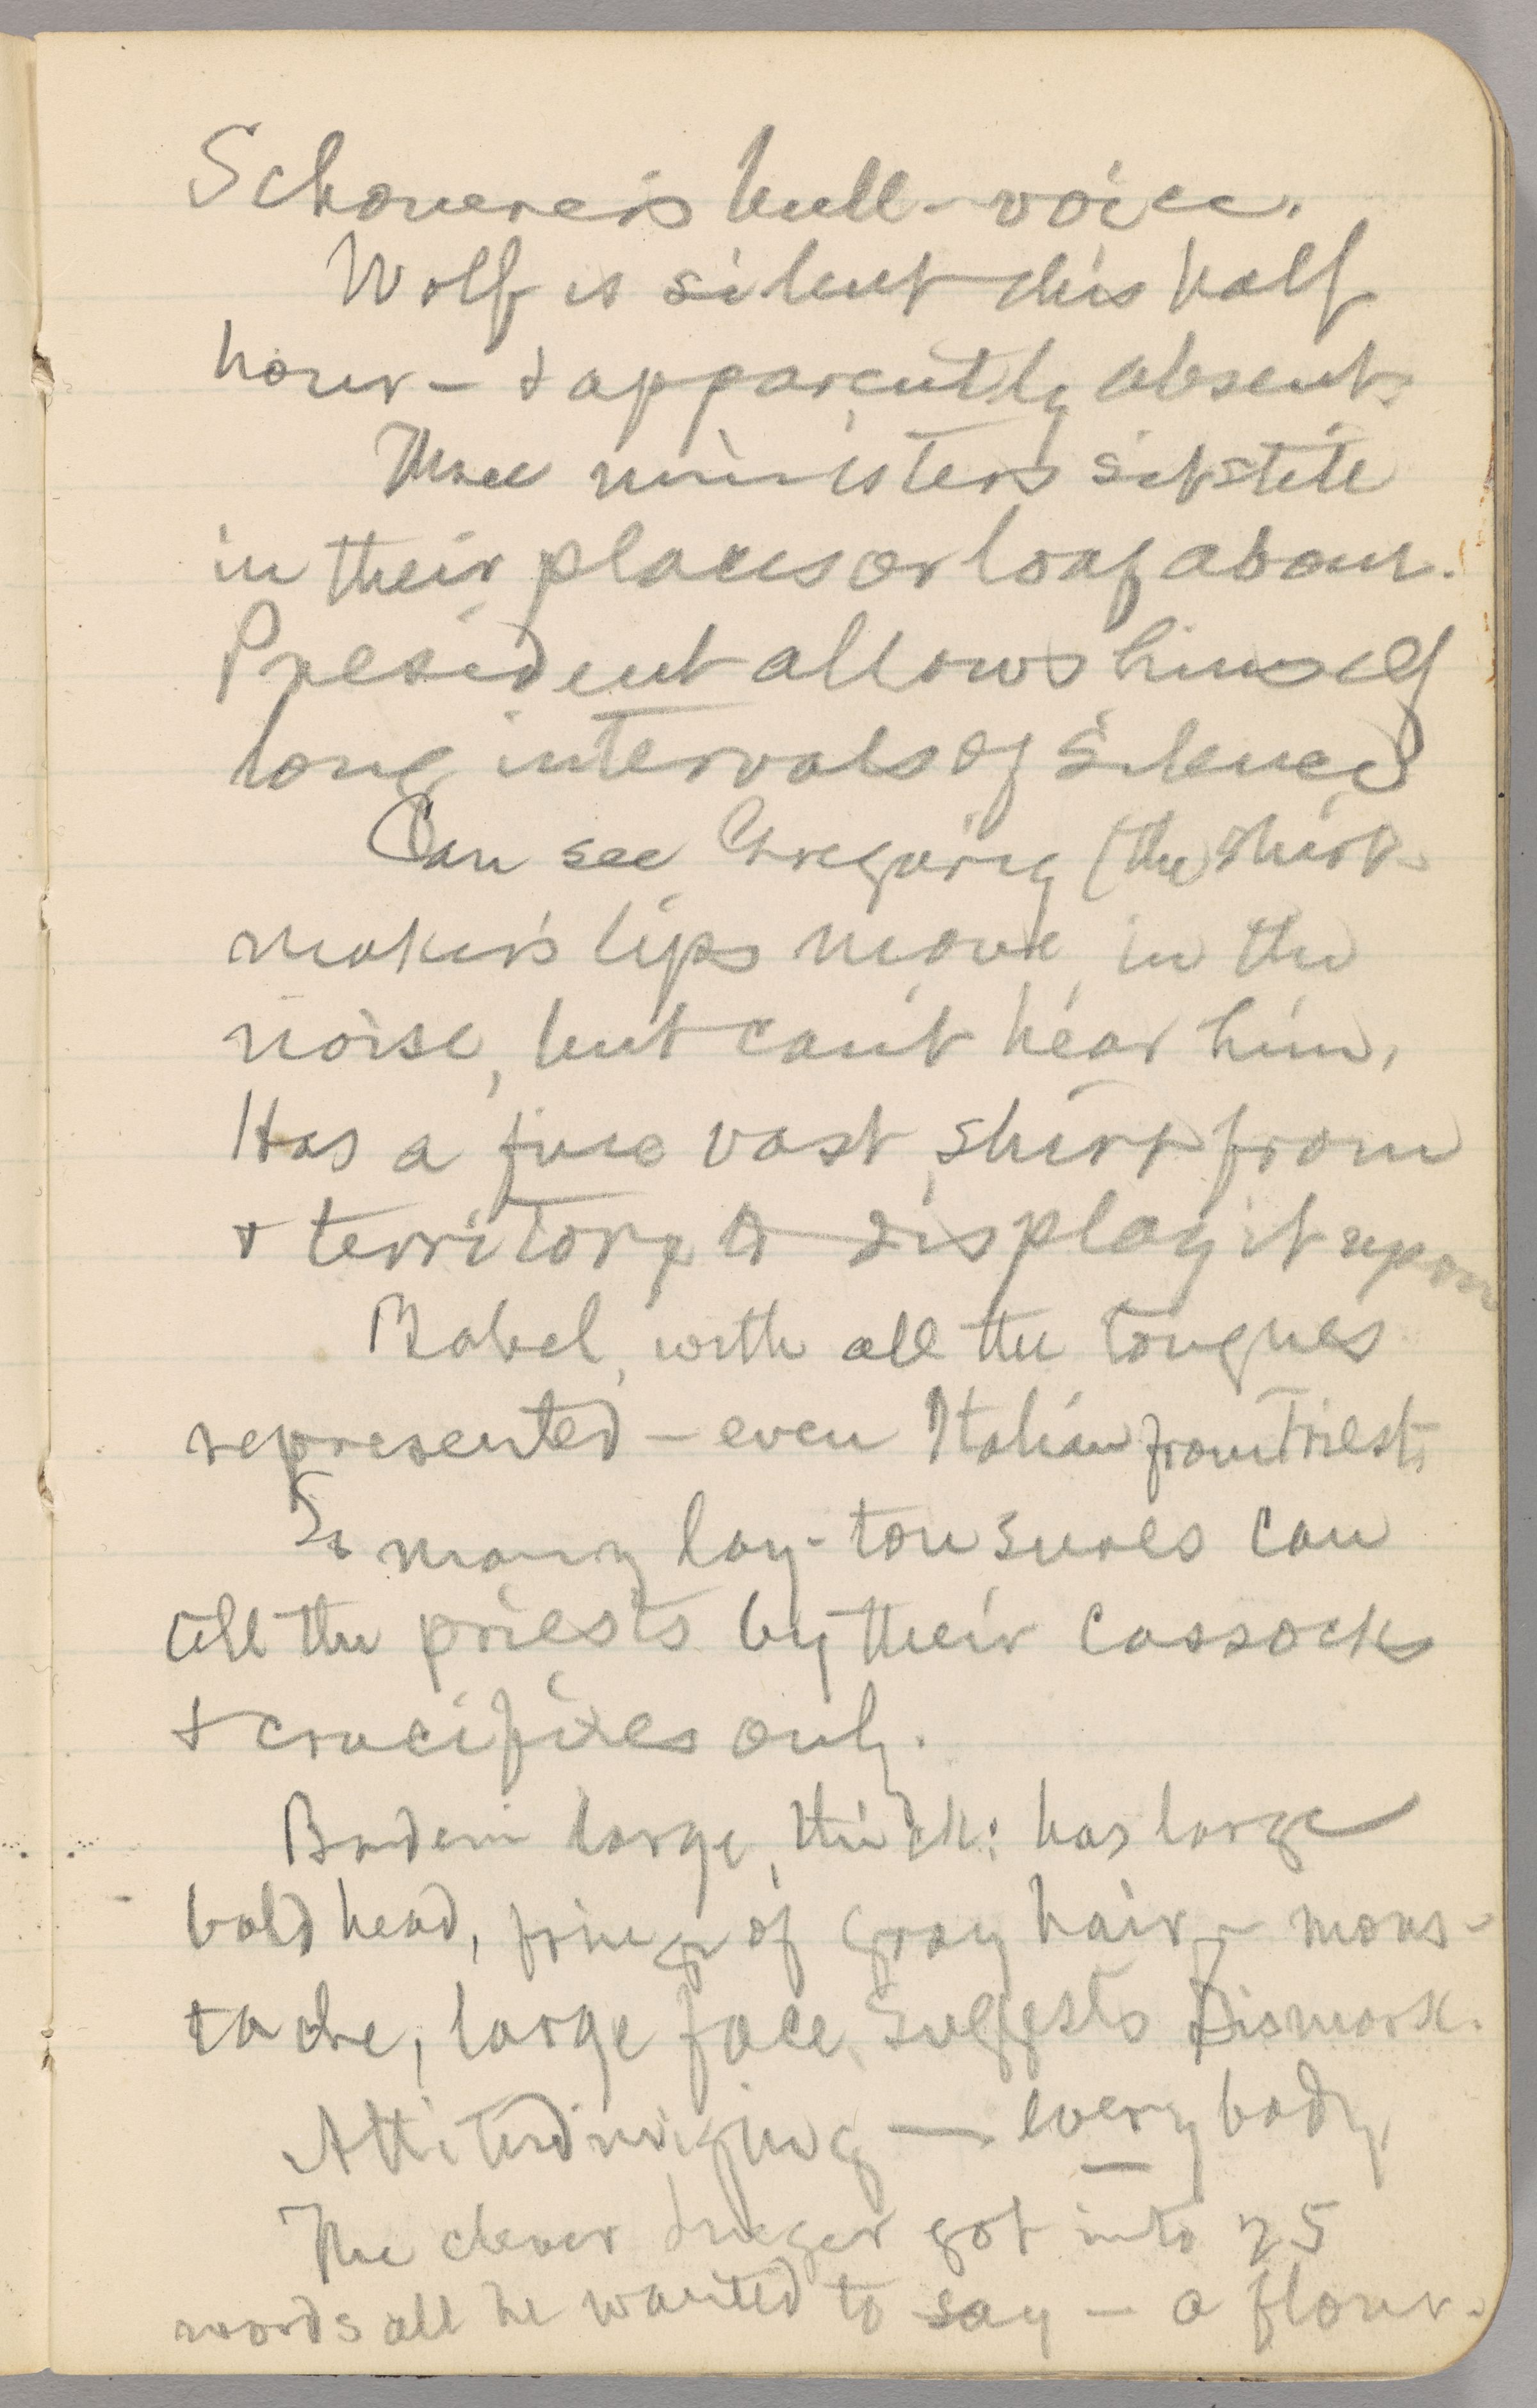 Schonerer's bull-voice.
Wolf is silent this half
hour — & apparently absent.
Three ministers sit still
in their places or loaf about.
President allows himself
long intervals of silence
Can see Gregorig (the shirt-
maker's lips move in the
noise, but can't hear him.
Has a fine vast shirt front
& territory to display it upon
Babel, with all the tongues
represented — even Italian from Trieste
So many lay-tonsures can
tell the priests by their cassocks
& crucifixes only.
Badeni large, thick: has large
bald head, fringe of gray hair, — mous-
tache, large face, suggests Bismark.
Attitudinizing — everybody
The clever got into 25
words all he wanted to say — a flour-